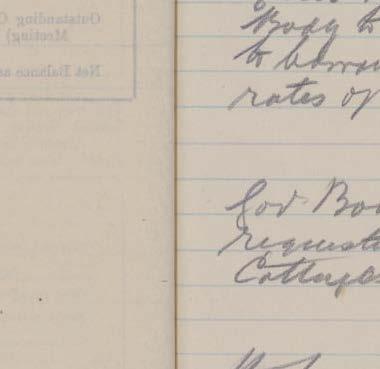 Outstanding C
Meeting)
Net Balance as
Body to
to borrow
rates of
Gov. Bo
requeste
Cottages